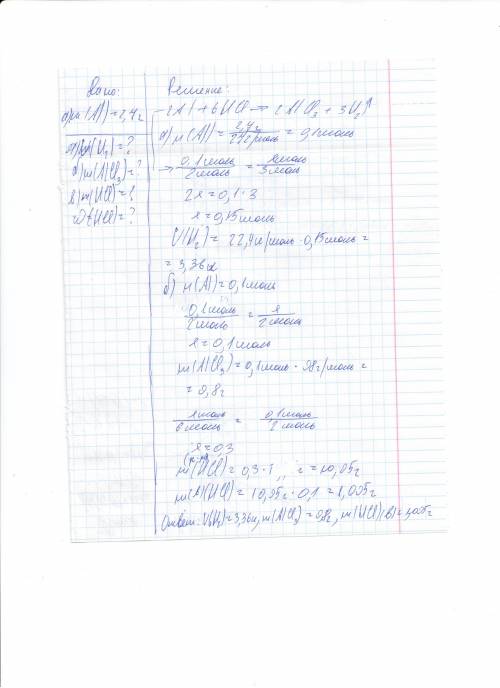 Дано:
m(Al)=2,4г
V(H₂)=?
б) m(AlCl₃)=?
в) m(HCl)=?
(HCl)=?
Решение:
2Al+6HCl → 2AlCl₃+3H₂↑
а) n(Al)= 2,4г / 27г/моль = 0,1моль
→ 0,1моль / 2моль = xмоль / 3моль
2x=0,1·3
x=0,15моль
V(H₂)=22,4л/моль·0,15моль=
=3,36л
б) n(Al)=0,1моль
0,1моль / 2моль = x / 2моль
x=0,1моль
m(AlCl₃)=0,1моль·98г/моль=
=9,8г
xмоль / 6моль = 0,1моль / 2моль
x=0,3
m(HCl)=0,3· г=10,05г
m(HCl)=10,05г·0,1=1,005г
Ответ: V(H₂)=3,36л, m(AlCl₃)=9,8г, m(HCl)(в)=1,005г